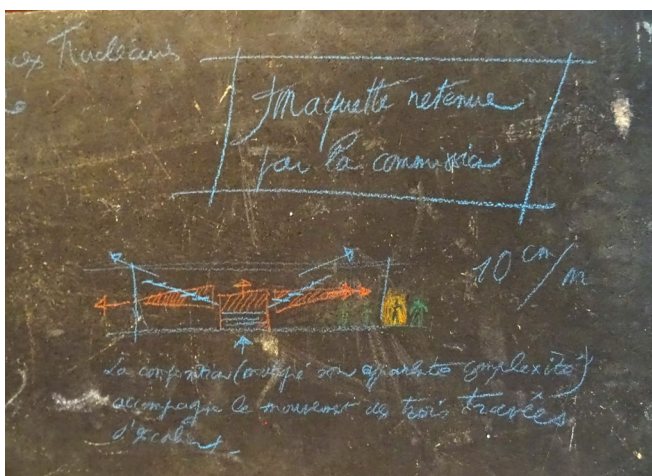 Maquette retenue
par la commission
10 cm/m
La conception (malgré son apparente complexité)
accompagne le mouvement des trois travées
d'escaliers